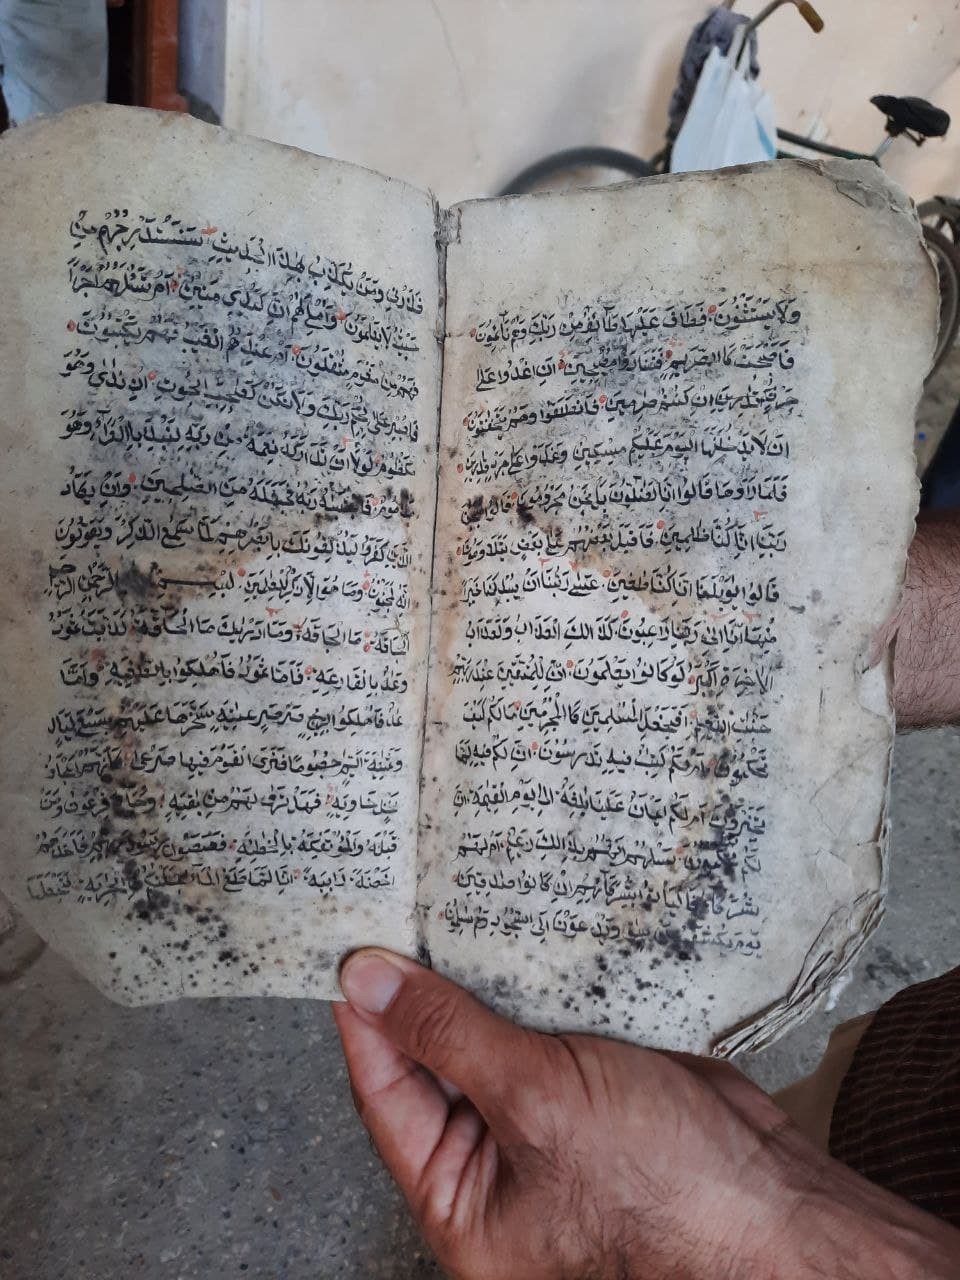 ولا يستثنون فطاف عليها طائف من ربك وهم نائمون
فاصبحت كالصريم فتنادوا مصبحين ان اغدوا على
حرثكم ان كنتم صرمين فانطلقوا وهم يتخفتون
ان لا يدخلنها اليوم عليكم مسكين وغدوا على حرد قدرين
فلما راوها قالوا انا لضالون بل نحن محرومون قال
ربنا انا كنا ظلمين فاقبل بعضهم على بعض يتلاومون
قالوا يويلنا انا كنا طغين عسى ربنا ان يبدلنا خيرا
منها انا الى ربنا راغبون كذلك العذاب ولعذاب
الاخرة اكبر لو كانوا يعلمون ان للمتقين عند ربهم
جنت النعيم افنجعل المسلمين كالمجرمين ما لكم كيف
تحكمون ام لكم كتب فيه تدرسون ان لكم فيه لما
تخيرون ام لكم ايمان علينا بلغة الى يوم القيمة ان
لكم تحكمون سلهم ايهم بذلك زعيم ام لهم
شركاء فلياتوا بشركائهم ان كانوا صدقين
يوم يكشف ويدعون الى السجود
فذرنى ومن يكذب بهذا الحديث سنستدرجهم من
حيث لا يعلمون واملى لهم ان كيدى متين ام تسئلهم اجرا
فهم من مغرم مثقلون ام عندهم الغيب فهم يكتبون
فاصبر لحكم ربك ولا تكن كصاحب الحوت اذ نادى وهو
مكظوم لولا ان تداركه نعمة من ربه لنبذ بالعراء وهو
مذموم فاجتبيه ربه فجعله من الصلحين وان يكاد
الذين كفروا ليزلقونك بابصرهم لما سمعوا الذكر ويقولون
انه لمجنون وما هو الا ذكر للعلمين بسم الرحمن الرحيم
الحاقة ما الحاقة وما ادريك ما الحاقة كذبت ثمود
وعاد بالقارعة فاما ثمود فاهلكوا بالطاغية واما
عاد فاهلكوا بريح صرصر عاتية سخرها عليهم سبع ليال
وثمنية ايام حسوما فترى القوم فيها صرعى كانهم اعجاز
نخل خاوية فهل ترى لهم من باقية وجاء فرعون ومن
قبله والمؤتفكت بالخاطئة فعصوا رسول ربهم فاخذهم
اخذة رابية انا لما طغا الماء حملنكم فى الجارية لنجعلها